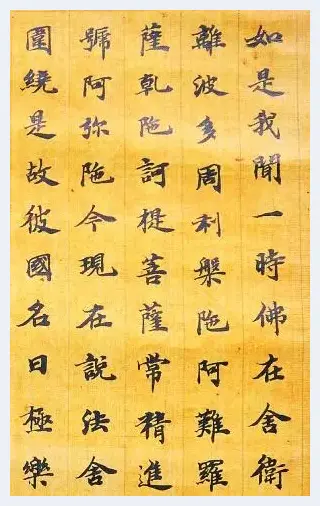 如是我聞一時佛在舍衛
離波多周利槃陁阿難羅
薩乹陁訶提菩薩常精進
號阿弥陁今現在說法舍
圍繞是故彼國名曰極樂